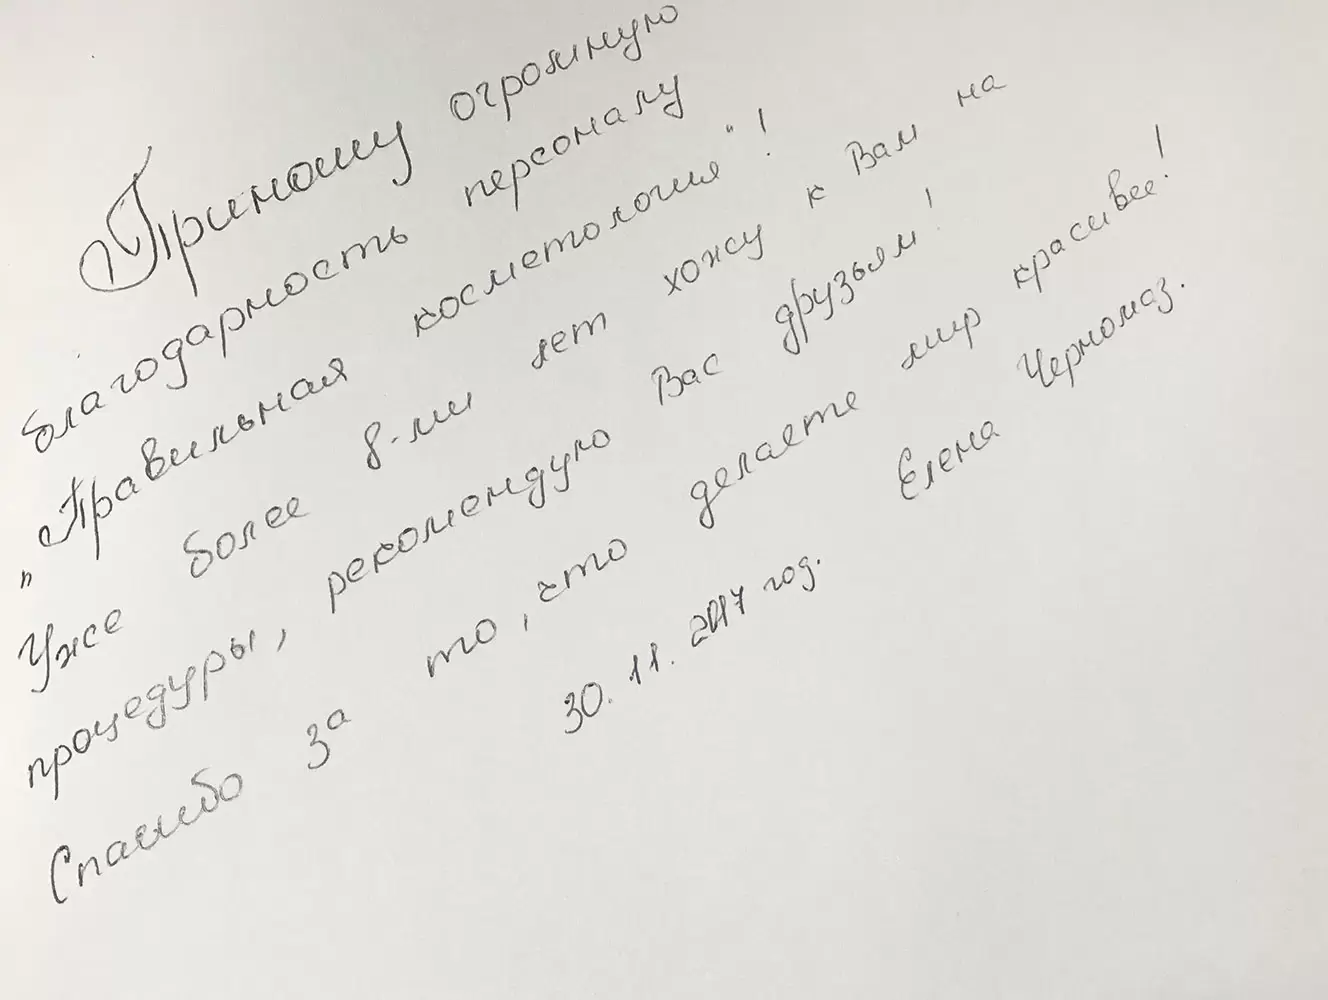 Приношу огромную
благодарность персоналу
„Правильная косметология"!
Уже более 8-ми лет хожу к Вам на
процедуры, рекомендую Вас друзьям!
Спасибо за то, что делаете мир красивее!
Елена Черномаз.
30.11.2017 год.